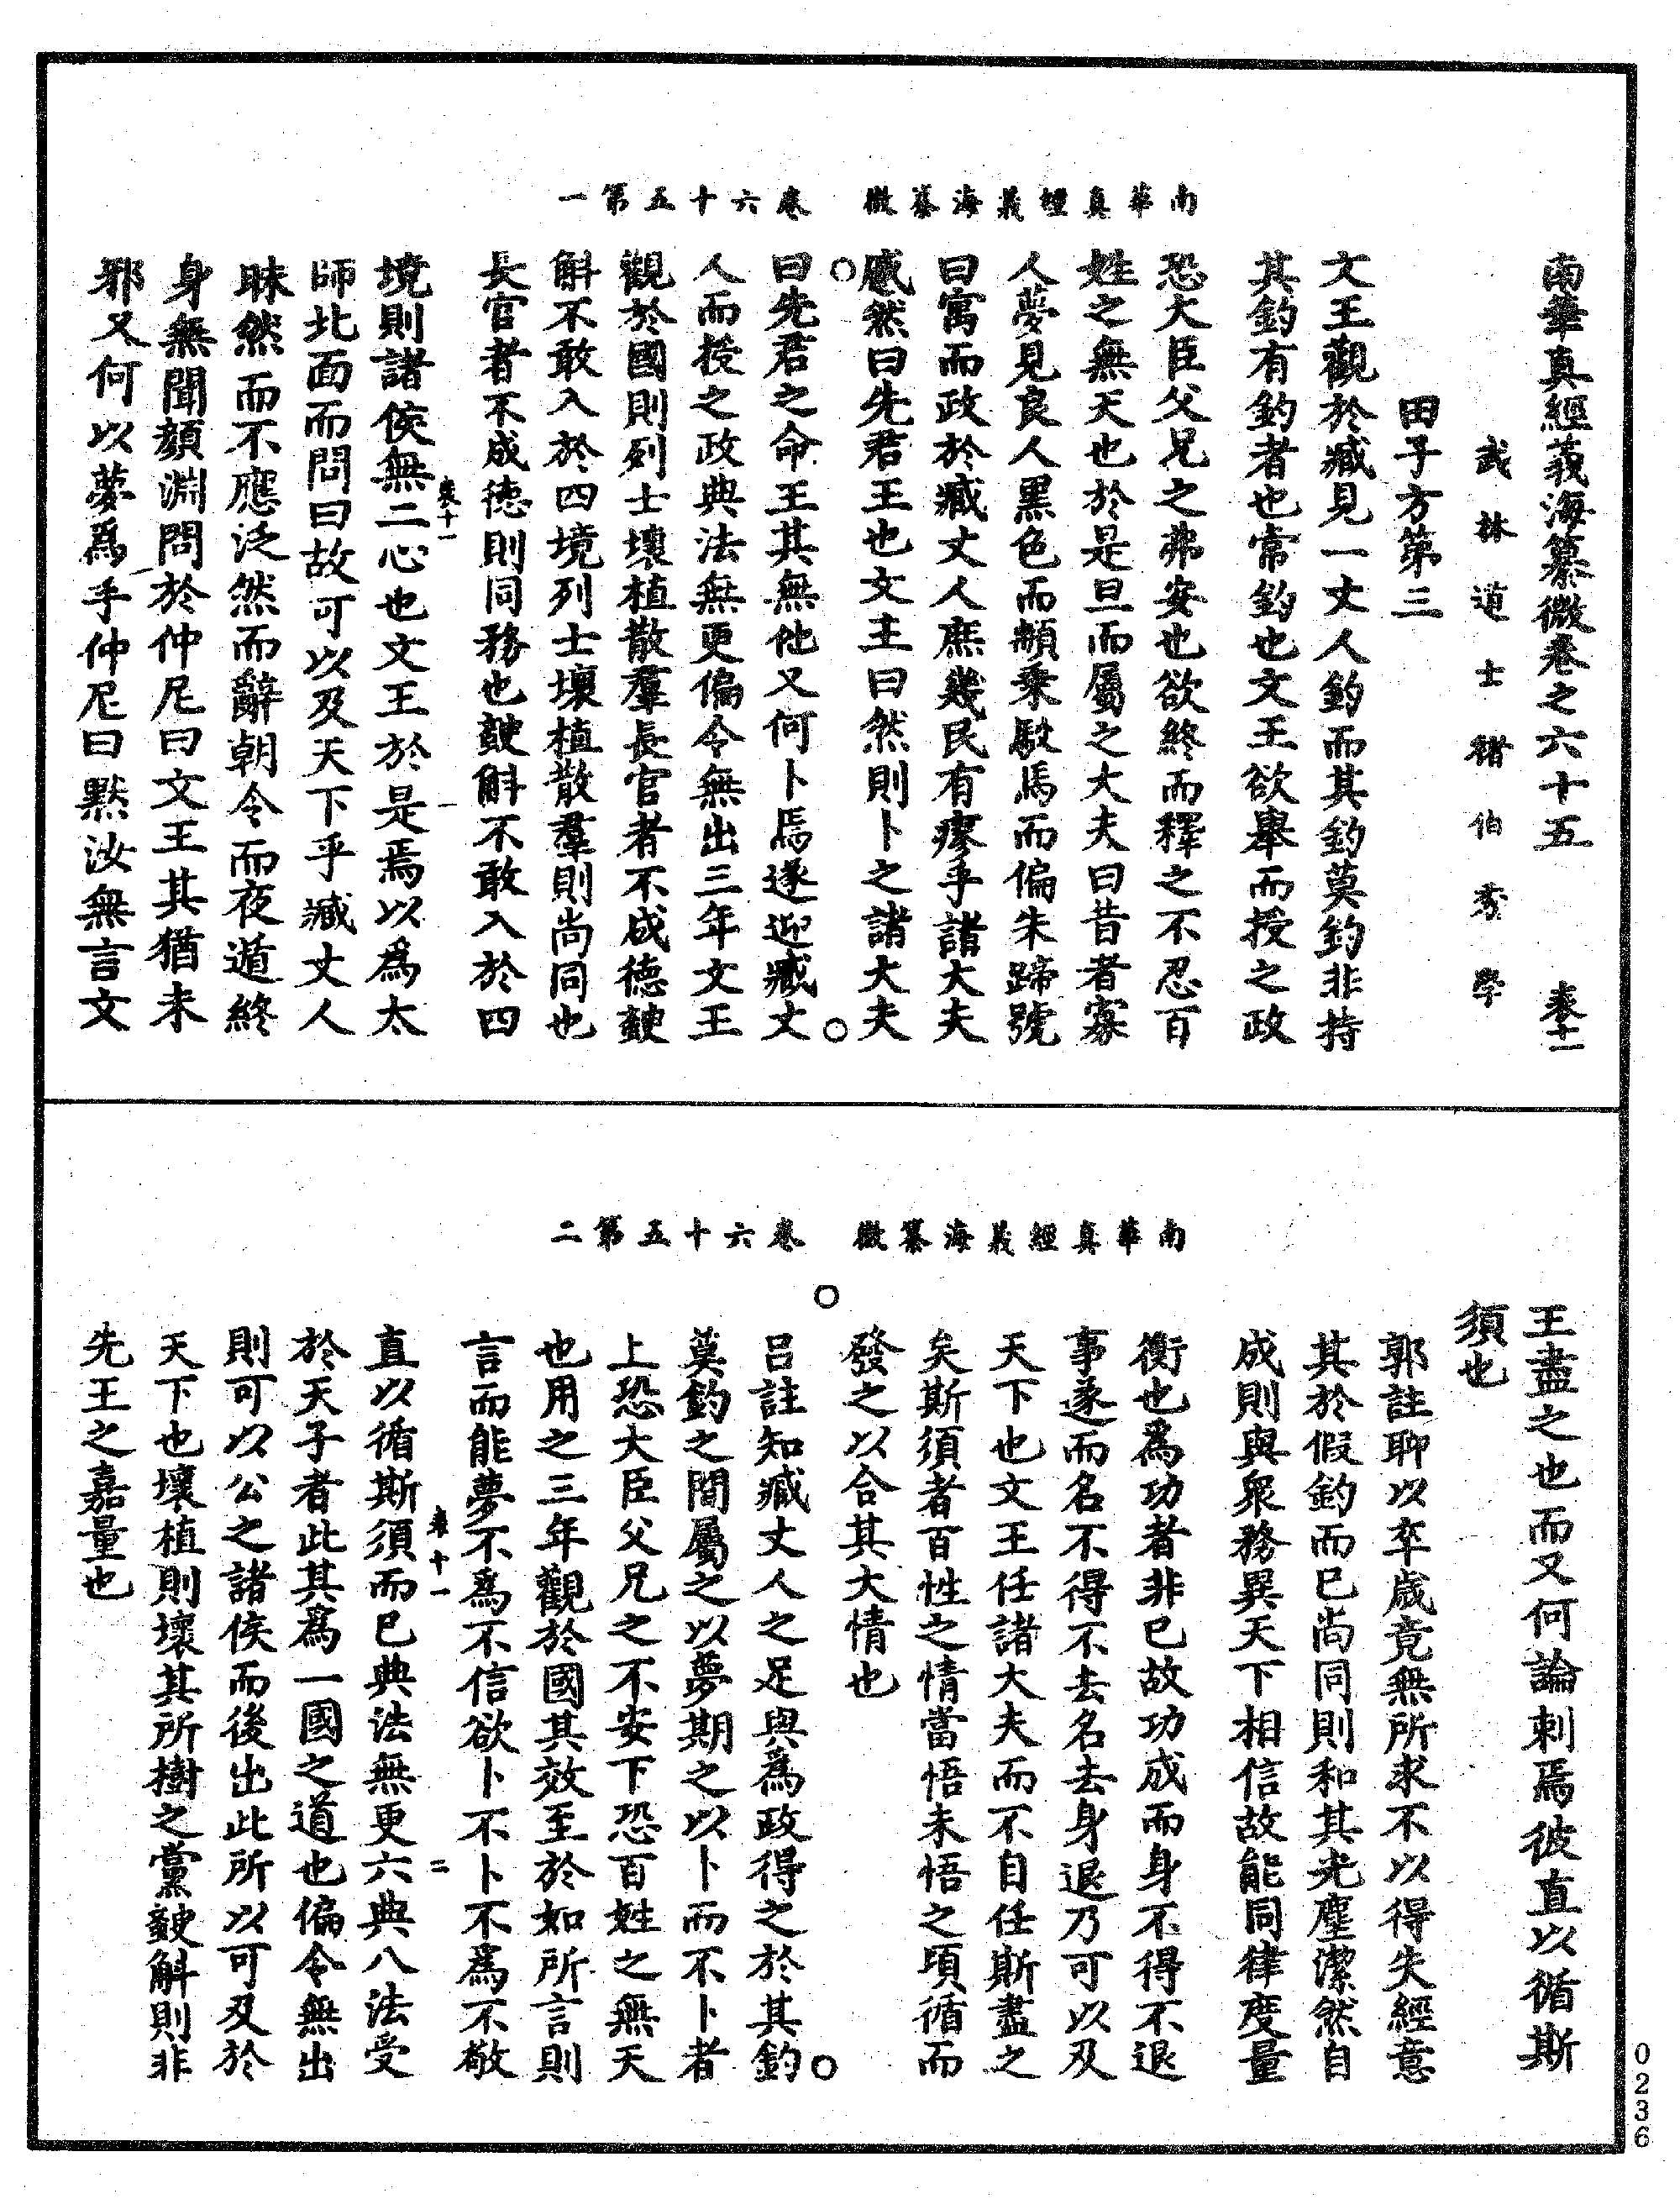 南華真經義海纂微　卷六十五第一
南華真經義海纂微卷之六十五　　　恭十一
武林道士褚伯秀學
田子方第三
文王觀於臧見一丈人釣而其釣莫釣非持
其釣有釣者也常釣也文王欲舉而授之政
恐大臣父兄之弗安也欲終而釋之不忍百
姓之無天也於是旦而屬之大夫曰昔者寡
人夢見良人黑色而䫇乘駁馬而偏朱蹄號
曰寓而政於臧丈人庶幾民有瘳乎諸大夫
蹙然曰先君王也文王曰然則卜之諸大夫
曰先君之命王其無他又何卜焉遂迎臧丈
人而授之政典法無更偏令無出三年文王
觀於國則列士壞植散羣長官者不成德䠶
斛不敢入於四境列士壞植散羣則尚同也
長官者不成德則同務也䠶斛不敢入於四
恭十一　　一
境則諸侯無二心也文王於是焉以為太
師北面而問曰故可以及天下乎臧丈人
昧然而不應泛然而辭朝令而夜遁終
身無聞顏淵問於仲尼曰文王其猶未
邪又何以夢爲乎仲尼曰默汝無言文
南華真經義海纂微　卷六十五第二
王盡之也而又何論刺焉彼直以循斯
須也
郭註聊以卒歲竟無所求不以得失經意
其於假釣而已尚同則和其光塵潔然自
成則與衆務異天下相信故能同律度量
衡也爲功者非已故功成而身不得不退
事遂而名不得不去名去身退乃可以及
天下也文王任諸大夫而不自任斯盡之
矣斯須者百性之情當悟未悟之頃循而
發之以合其大情也
吕註知臧丈人之足與爲政得之於其釣
莫釣之間屬之以夢期之以卜而不卜者
上恐大臣父兄之不安下恐百姓之無天
也用之三年觀於國其效至於如所言則
言而能夢不爲不信欲卜不卜不爲不敬
恭十一　　二
直以循斯須而已典法無更六典八法受
於天子者此其爲一國之道也偏令無出
則可以公之諸侯而後出此所以可及於
天下也壞植則壞其所樹之黨䠶斛則非
先王之嘉量也
0236